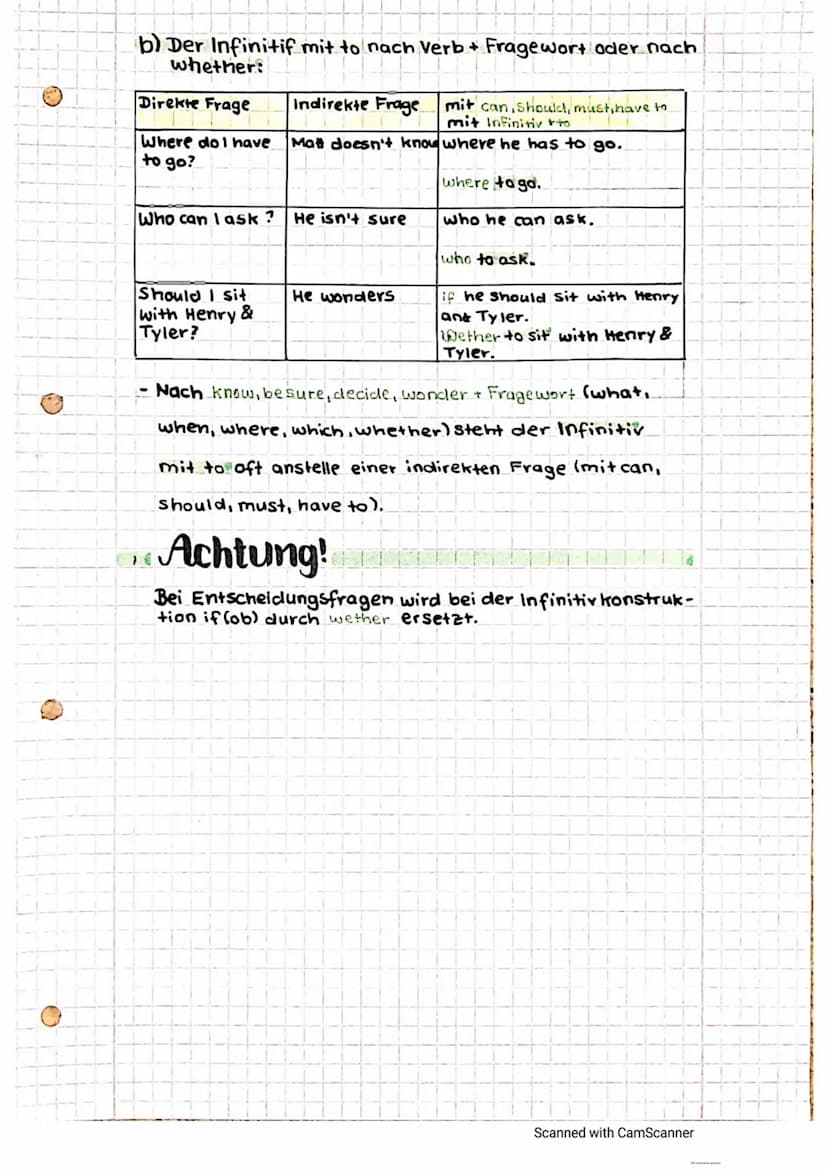 b) Der Infinitif mit to nach Verb + Fragewort oder nach
whether:
Direkte Frage | Indirekte Frage | mit can, should, must, have to
mit Infinitiv + to
Where do I have | Matt doesn't know | where he has to go.
to go?
where to go.
Who can I ask? | He isn't sure | who he can ask.
who to ask.
Should I sit | He wonders | if he should sit with Henry
with Henry & | and Tyler.
Tyler? | Wether to sit with Henry &
Tyler.
- Nach know, be sure, decide, wonder + Fragewort (what,
when, where, which, whether) steht der Infinitiv
mit to oft anstelle einer indirekten Frage (mit can,
should, must, have to).
Achtung!
Bei Entscheidungsfragen wird bei der Infinitivkonstruk-
tion if (ob) durch wether ersetzt.
Scanned with CamScanner